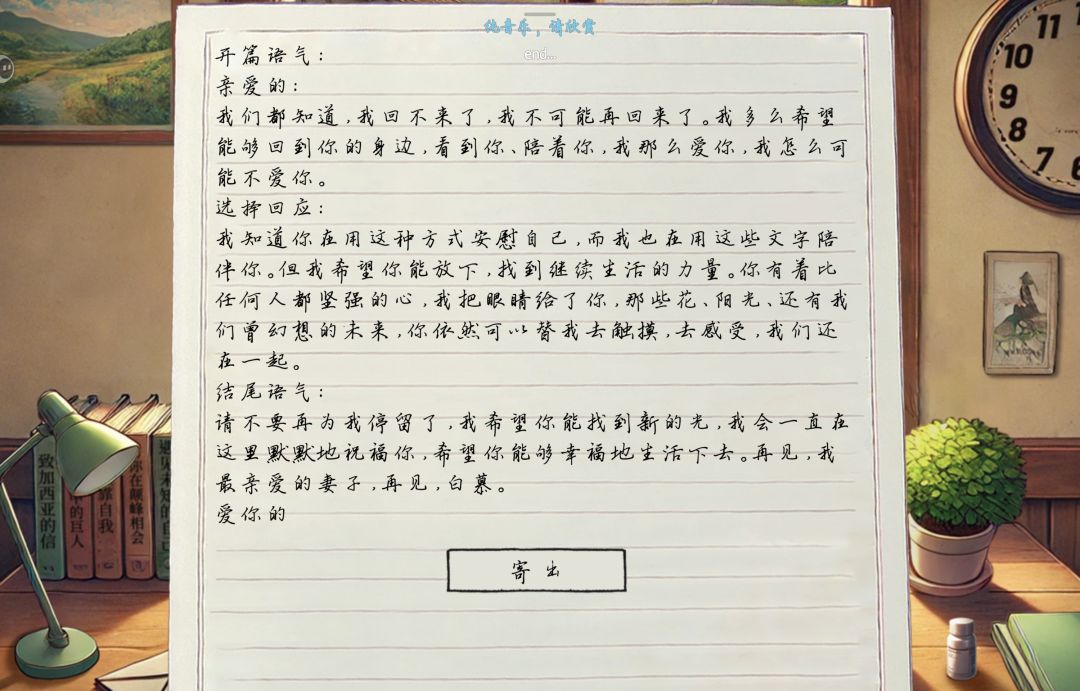 纯音乐，请欣赏
end...
开篇语气：
亲爱的：
我们都知道，我回不来了，我不可能再回来了。我多么希望
能够回到你的身边，看到你、陪着你，我那么爱你，我怎么可
能不爱你。
选择回应：
我知道你在用这种方式安慰自己，而我也在用这些文字陪
伴你。但我希望你能放下，找到继续生活的力量。你有着比
任何人都坚强的心，我把眼睛给了你，那些花、阳光、还有我
们曾幻想的未来，你依然可以替我去触摸，去感受，我们还
在一起。
结尾语气：
请不要再为我停留了，我希望你能找到新的光，我会一直在
这里默默地祝福你，希望你能够幸福地生活下去。再见，我
最亲爱的妻子，再见，白慕。
爱你的
寄出
致加西亚的信
中的巨人
靠自我
你在颠峰相会
遇见未知的自己
11
10
9
8
7
6